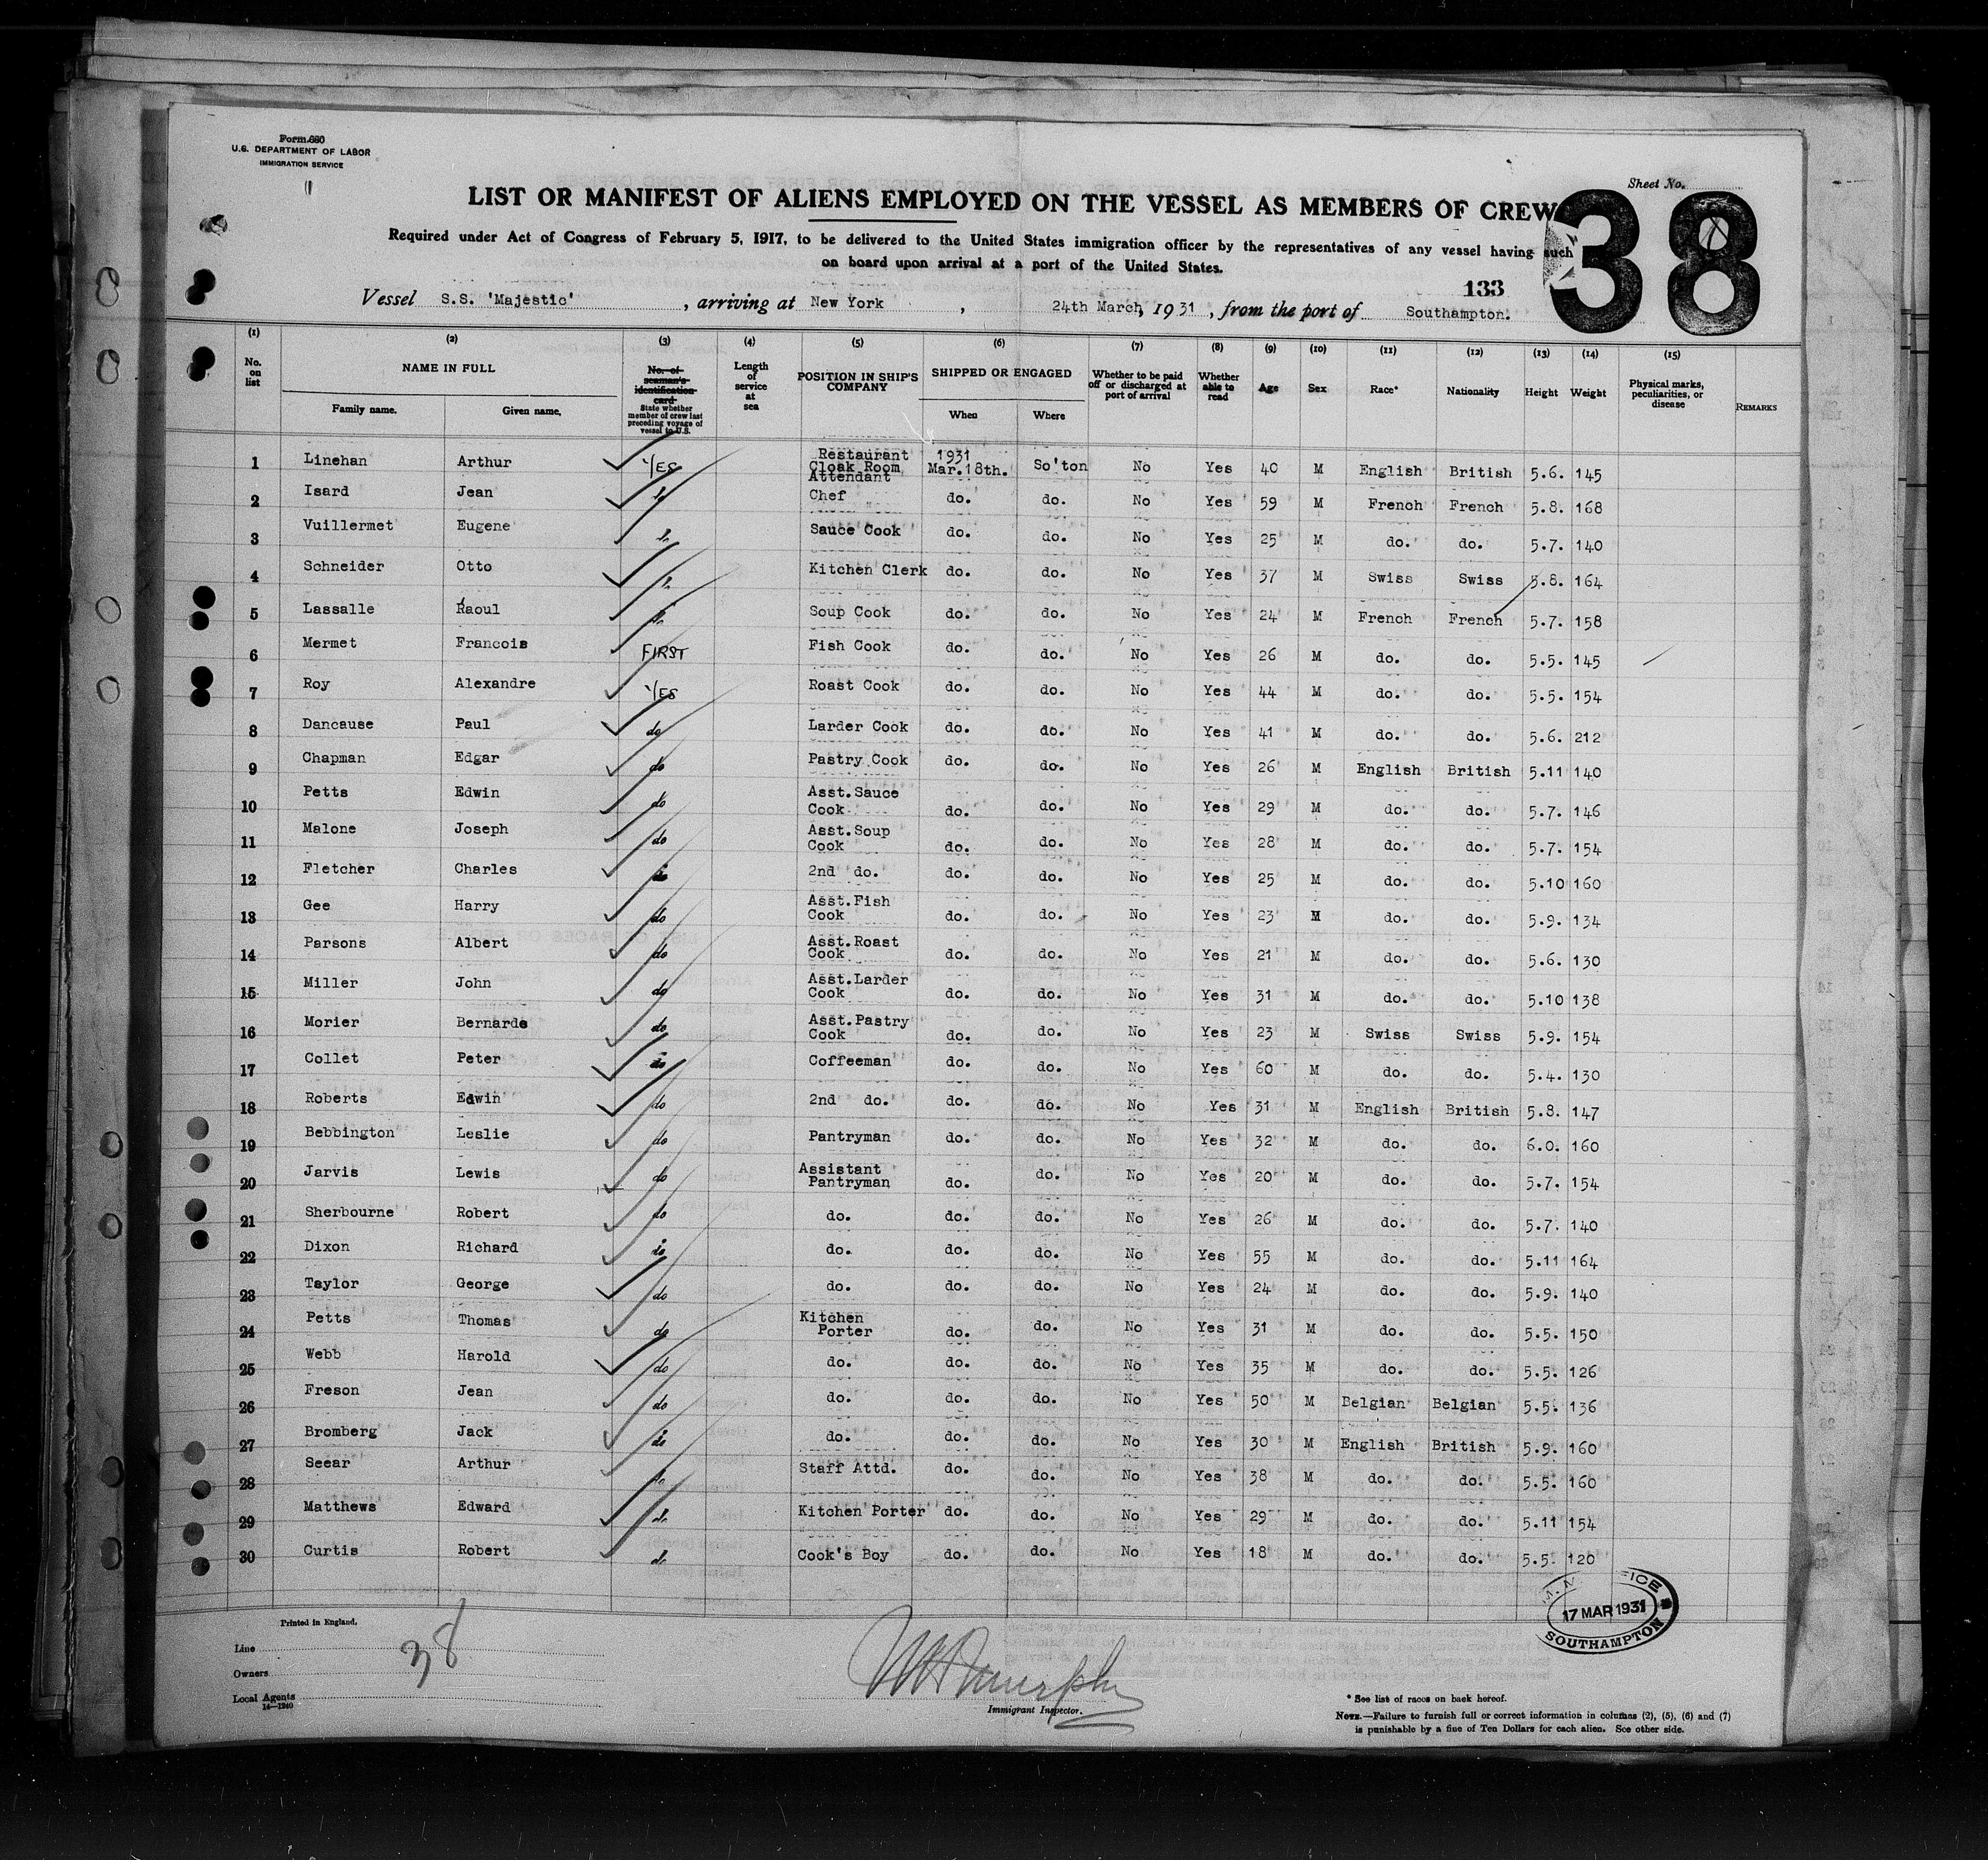 Form 680
U.S. DEPARTMENT OF LABOR
IMMIGRATION SERVICE
Sheet No.
38
LIST OR MANIFEST OF ALIENS EMPLOYED ON THE VESSEL AS MEMBERS OF CREW
Required under Act of Congress of February 5, 1917, to be delivered to the United States immigration officer by the representatives of any vessel having such
on board upon arrival at a port of the United States.
133
Vessel S.S. 'Majestic', arriving at New York, 24th March, 1931, from the port of Southampton.
(1) (2) (3) (4) (5) (6) (7) (8) (9) (10) (11) (12) (13) (14) (15)
No. on list NAME IN FULL Family name. Given name. No. of seaman's identification card State whether member of crew last preceding voyage of vessel to U.S. Length of service at sea POSITION IN SHIP'S COMPANY SHIPPED OR ENGAGED When Where Whether to be paid off or discharged at port of arrival Whether able to read Age Sex Race* Nationality Height Weight Physical marks, peculiarities, or disease REMARKS
1 Linehan Arthur YES Restaurant Cloak Room Attendant 1931 Mar.18th. So'ton No Yes 40 M English British 5.6. 145
2 Isard Jean Chef do. do. No Yes 59 M French French 5.8. 168
3 Vuillermet Eugene Sauce Cook do. do. No Yes 25 M do. do. 5.7. 140
4 Schneider Otto Kitchen Clerk do. do. No Yes 37 M Swiss Swiss 5.8. 164
5 Lassalle Raoul Soup Cook do. do. No Yes 24 M French French 5.7. 158
6 Mermet Francois FIRST Fish Cook do. do. No Yes 26 M do. do. 5.5. 145
7 Roy Alexandre YES Roast Cook do. do. No Yes 44 M do. do. 5.5. 154
8 Dancause Paul do Larder Cook do. do. No Yes 41 M do. do. 5.6. 212
9 Chapman Edgar do Pastry Cook do. do. No Yes 26 M English British 5.11 140
10 Petts Edwin do Asst.Sauce Cook do. do. No Yes 29 M do. do. 5.7. 146
11 Malone Joseph do Asst.Soup Cook do. do. No Yes 28 M do. do. 5.7. 154
12 Fletcher Charles do 2nd do. do. do. No Yes 25 M do. do. 5.10 160
13 Gee Harry do Asst.Fish Cook do. do. No Yes 23 M do. do. 5.9. 134
14 Parsons Albert do Asst.Roast Cook do. do. No Yes 21 M do. do. 5.6. 130
15 Miller John do Asst.Larder Cook do. do. No Yes 31 M do. do. 5.10 138
16 Morier Bernarde do Asst.Pastry Cook do. do. No Yes 23 M Swiss Swiss 5.9. 154
17 Collet Peter do Coffeeman do. do. No Yes 60 M do. do. 5.4. 130
18 Roberts Edwin do 2nd do. do. do. No Yes 31 M English British 5.8. 147
19 Bebbington Leslie do Pantryman do. do. No Yes 32 M do. do. 6.0. 160
20 Jarvis Lewis do Assistant Pantryman do. do. No Yes 20 M do. do. 5.7. 154
21 Sherbourne Robert do do. do. do. No Yes 26 M do. do. 5.7. 140
22 Dixon Richard do do. do. do. No Yes 55 M do. do. 5.11 164
23 Taylor George do do. do. do. No Yes 24 M do. do. 5.9. 140
24 Petts Thomas do Kitchen Porter do. do. No Yes 31 M do. do. 5.5. 150
25 Webb Harold do do. do. do. No Yes 35 M do. do. 5.5. 126
26 Freson Jean do do. do. do. No Yes 50 M Belgian Belgian 5.5. 136
27 Bromberg Jack do do. do. do. No Yes 30 M English British 5.9. 160
28 Seear Arthur do Staff Attd. do. do. No Yes 38 M do. do. 5.5. 160
29 Matthews Edward do Kitchen Porter do. do. No Yes 29 M do. do. 5.11 154
30 Curtis Robert do Cook's Boy do. do. No Yes 18 M do. do. 5.5. 120
OFFICE
17 MAR 1931
SOUTHAMPTON
Printed in England.
Line
38
Owners
Local Agents
14—1240
Immigrant Inspector.
* See list of races on back hereof.
NOTE.—Failure to furnish full or correct information in columns (2), (5), (6) and (7)
is punishable by a fine of Ten Dollars for each alien. See other side.